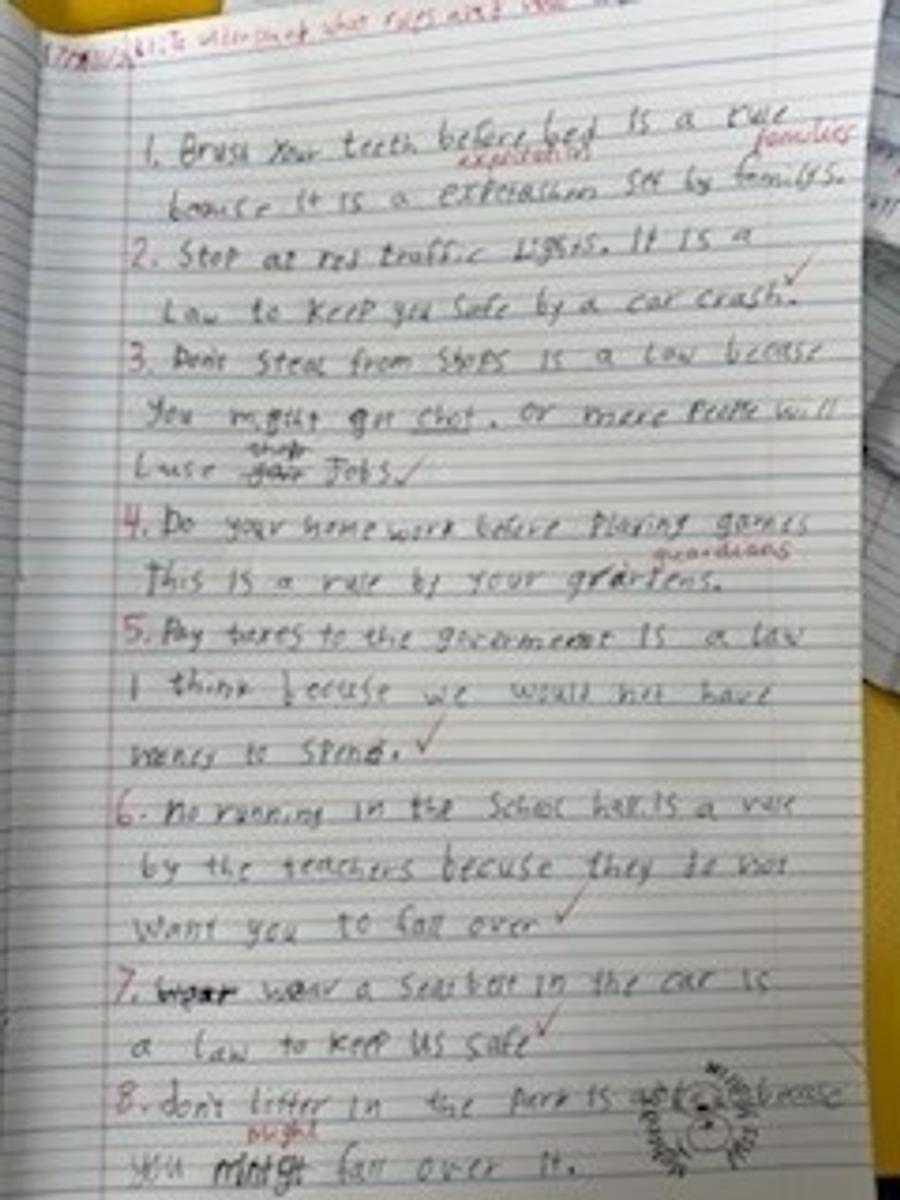 to understand what rules and
1. Brush your teeth before bed is a rule
expectation families
becuse it is a expetashen set by familys.
2. Stop at red traffic Lights. It is a
Law to keep you safe by a car crash.
3. Don't Steal from Shops is a Law becase
you might get shot. or more People will
Luse their Jobs
4. Do your home work before Playing games
guardians
This is a rule by your
5. Pay taxes to the goverment is a law
I think becuse we would not have
money to spend.
6. no running in the School hall is a rule
by the teachers becuse they do not
want you to fall over
7. wear a Seatbelt in the car is
a law to keep us safe
8. don't litter in the park is a becase
might
you fall over it.